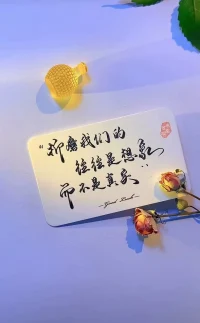 “折磨我们的
往往是想象
而不是真实”
—Good Luck—